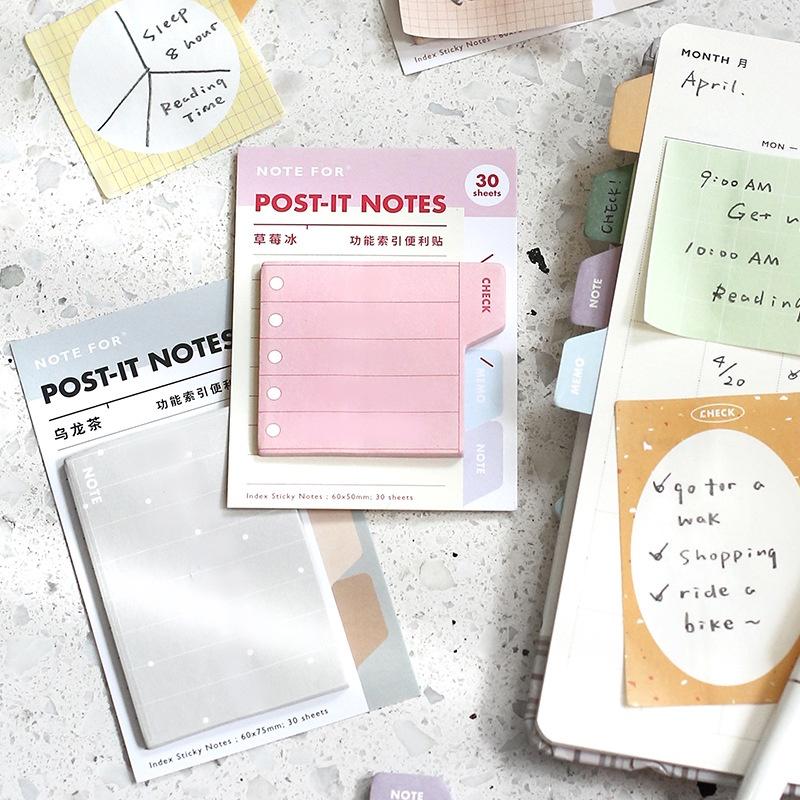 Sleep
8 hour
Reading
Time
Index Sticky Notes : 60
NOTE FOR®
POST-IT NOTES
30
sheets
草莓冰
功能索引便利贴
CHECK
MEMO
NOTE
Index Sticky Notes : 60x50mm; 30 sheets
NOTE FOR®
POST-IT NOTES
功能索引便利
乌龙茶
NOTE
Index Sticky Notes : 60x75mm; 30 sheets
NOTE
MONTH 月
April.
MON —
CHECK!
NOTE
MEMO
9:00 AM
Get
10:00 AM
Reading
4/20
CHECK
go for a
wak
shopping
ride a
bike ~